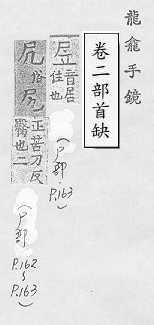 龍龕手鏡
卷二部首缺
㞐音居
住也
(尸部.P.163)
俗尻正苦刀反
也二
(尸部
P.162
~
P.163)